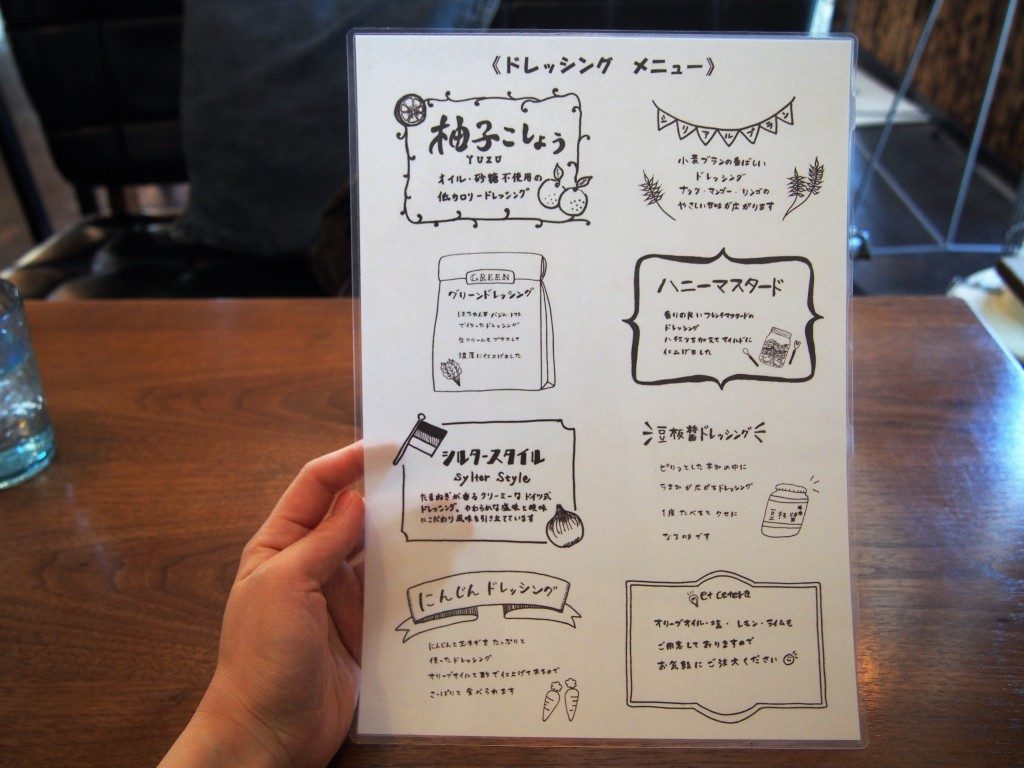 《ドレッシング メニュー》
柚子こしょう
YUZU
オイル・砂糖不使用の
低カロリードレッシング
シリアルブラン
小麦ブランの香ばしい
ドレッシング
ナッツ・マンゴー・リンゴの
やさしい甘味が広がります
GREEN
グリーンドレッシング
ほうれん草・バジル・トマト
で作ったドレッシング
生クリームをプラスして
濃厚に仕上げました
ハニーマスタード
香りの良いフレンチマスタードの
ドレッシング
ハチミツを加えてマイルドに
仕上げました
シルタースタイル
Sylter Style
たまねぎが香るクリーミーなドイツ式
ドレッシング。やわらかな塩味と酸味
にこだわり風味を引き立てています
豆板醤ドレッシング
ピリッとした辛みの中に
うまみが広がるドレッシング
1度たべるとクセに
なる味です
豆板醤
にんじんドレッシング
にんじんと玉ネギをたっぷりと
使ったドレッシング
オリーブオイルと酢で仕上げてあるので
さっぱりと食べられます
et cetera
オリーブオイル・塩・レモン・ライムも
ご用意しておりますので
お気軽にご注文ください